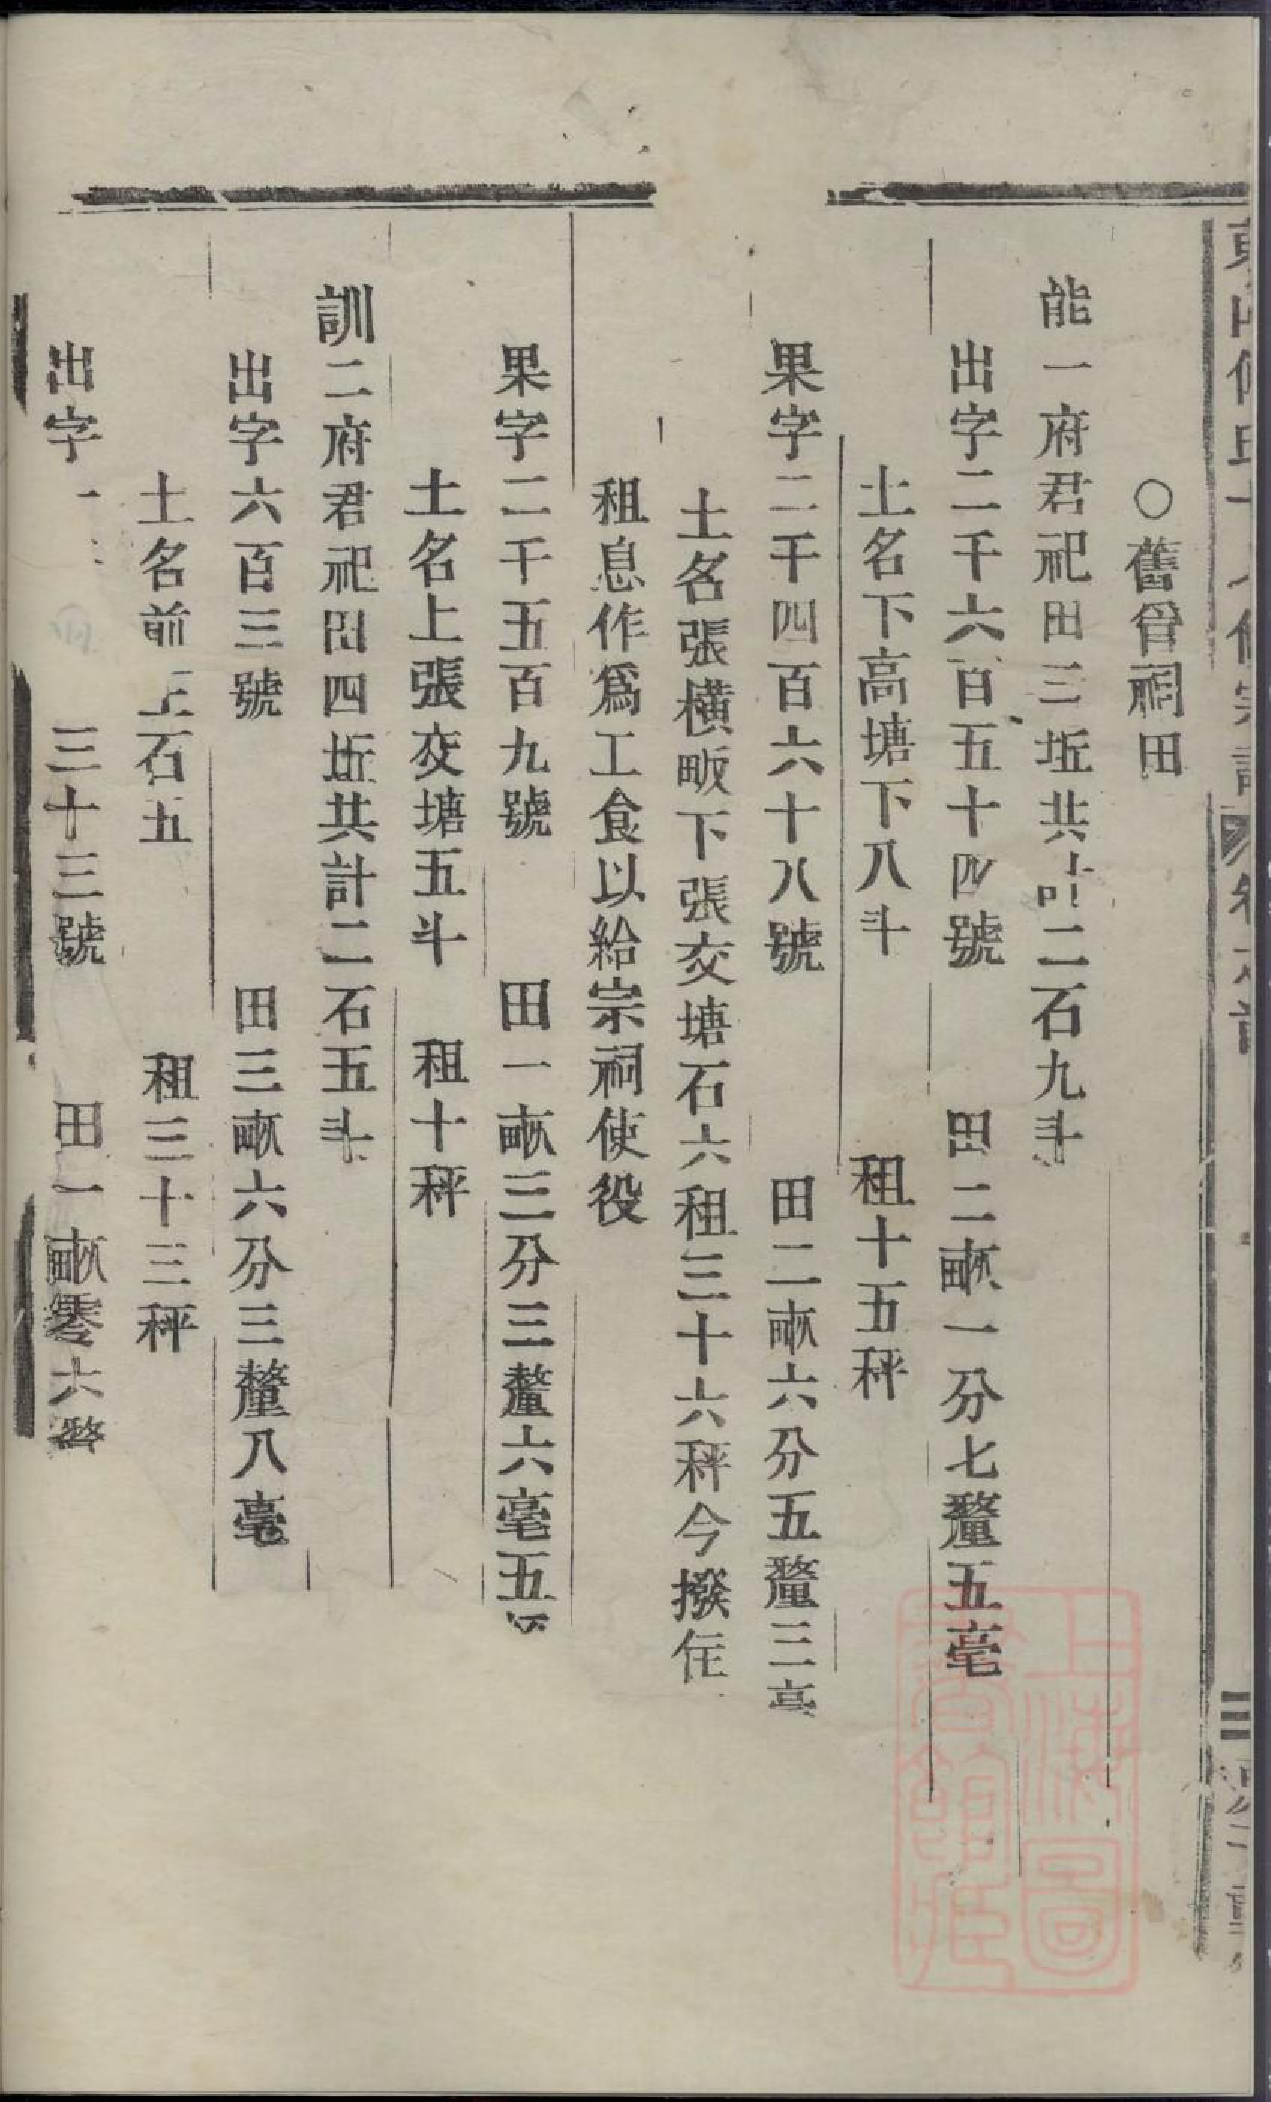 〇舊管祠田
能一府君祀田三坵共計二石九斗
出字二千六百五十四號 田二畝一分七釐五毫
土名下高塘下八斗 租十五秤
果字二千四百六十八號 田二畝六分五釐三毫
土名張橫畈下張交塘石六租三十六秤今撥任
租息作爲工食以給宗祠使役
果字二千五百九號 田一畝三分三釐六毫五
土名上張交塘五斗 租十秤
訓二府君祀田四坵共計二石五斗
出字六百三號 田三畝六分三釐八毫
土名前 石五 租三十三秤
出字 三十三號 田一畝零六釐
上海圖書館藏